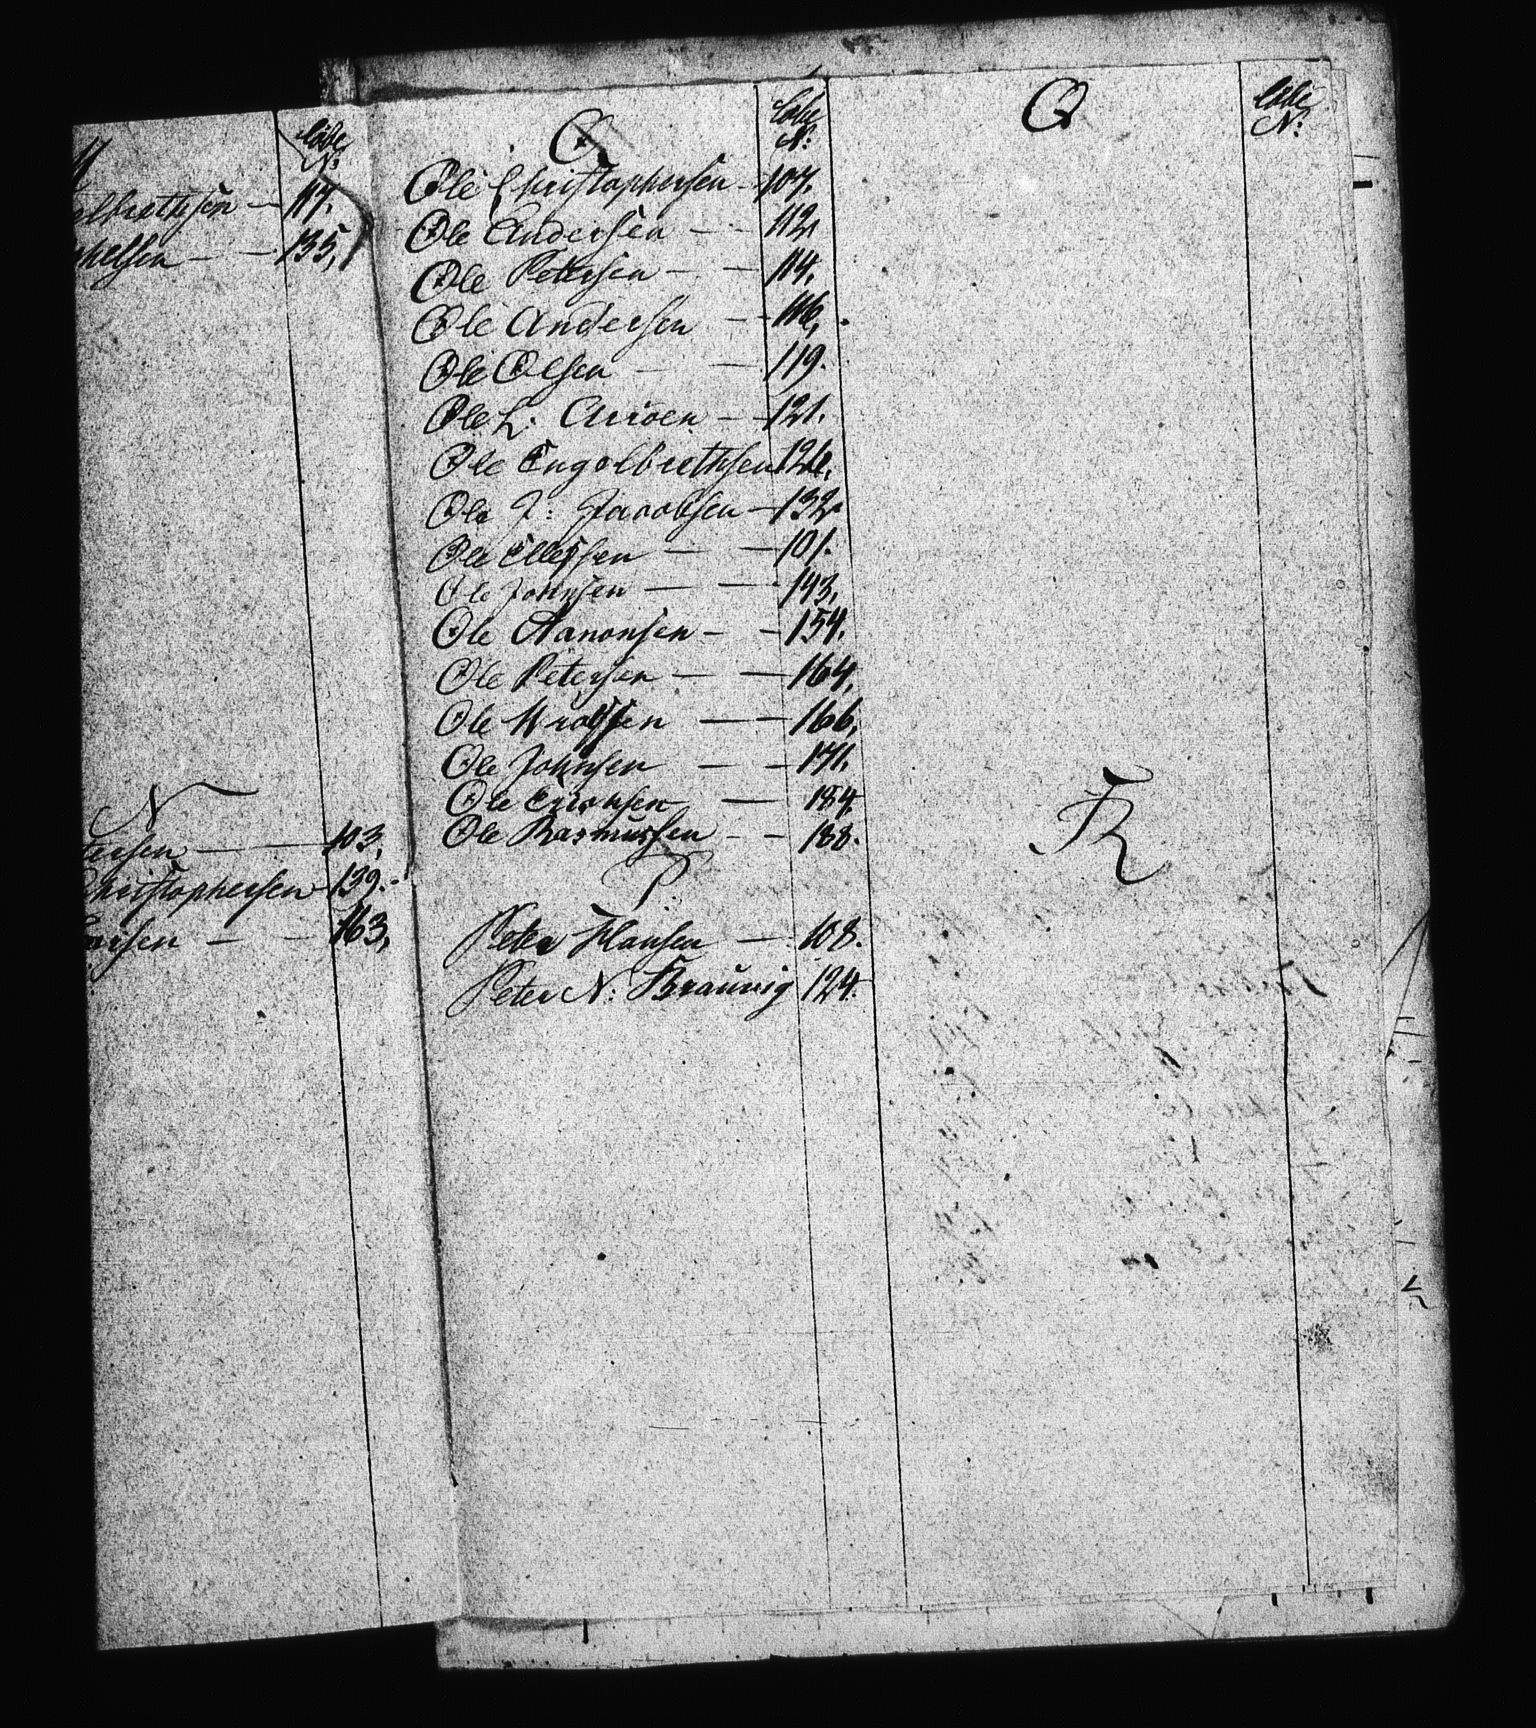 Løbe
N:
117.
135,
N
103,
Christophersen 139.
163,
O
Løbe
N:
Ole Christophersen 107.
Ole Andersen 112,
Ole Petersen 114,
Ole Andersen 116,
Ole Olsen 119.
Ole L: 121.
Ole Engelbrethsen 126,
Ole J: Jacobsen 132
Ole Ellefsen 101.
Ole Johnsen 143,
Ole Aanonsen 154,
Ole Petersen 164,
Ole 166,
Ole Johnsen 171.
Ole 184
Ole Rasmussen 188.
P
Peter Hansen 108.
Peter N: Brauvig 124.
Q
Løbe
N:
R